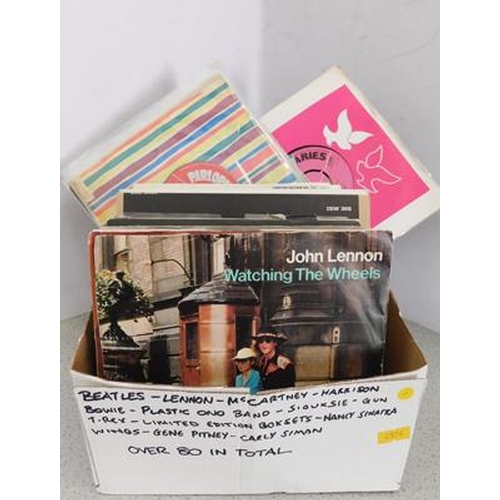 PARLOP
ARIES
ISW 265
John Lennon
Watching The Wheels
BEATLES - LENNON - McCARTNEY - HARRISON
BOWIE - PLASTIC ONO BAND - SIOUXSIE - GUN
T-REX - LIMITED EDITION BOXSETS - NANCY SINATRA
WINGS - GENE PITNEY - CARLY SIMON
OVER 80 IN TOTAL